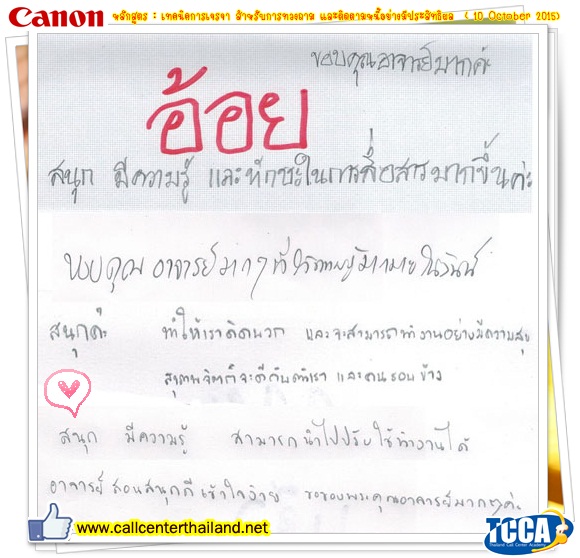 Canon หลักสูตร : เทคนิคการเจรจา สำหรับการทวงถาม และติดตามหนี้อย่างมีประสิทธิผล ( 10 October 2015)
ขอบคุณอาจารย์มากค่ะ
อ้อย
สนุก มีความรู้ และทักษะในการสื่อสารมากขึ้นค่ะ
ขอบคุณ อาจารย์มากๆที่ให้ความรู้มากมายในวันนี้
สนุกค่ะ ทำให้เราคิดบวก และจะสามารถทำงานอย่างมีความสุข
สุขภาพจิตก็จะดีกับตัวเรา และคนรอบข้าง
สนุก มีความรู้ สามารถนำไปปรับใช้ทำงานได้
อาจารย์สอนสนุกดีเข้าใจง่าย ขอขอบพระคุณอาจารย์มากๆค่ะ
www.callcenterthailand.net
TCCA
Thailand Call Center Academy